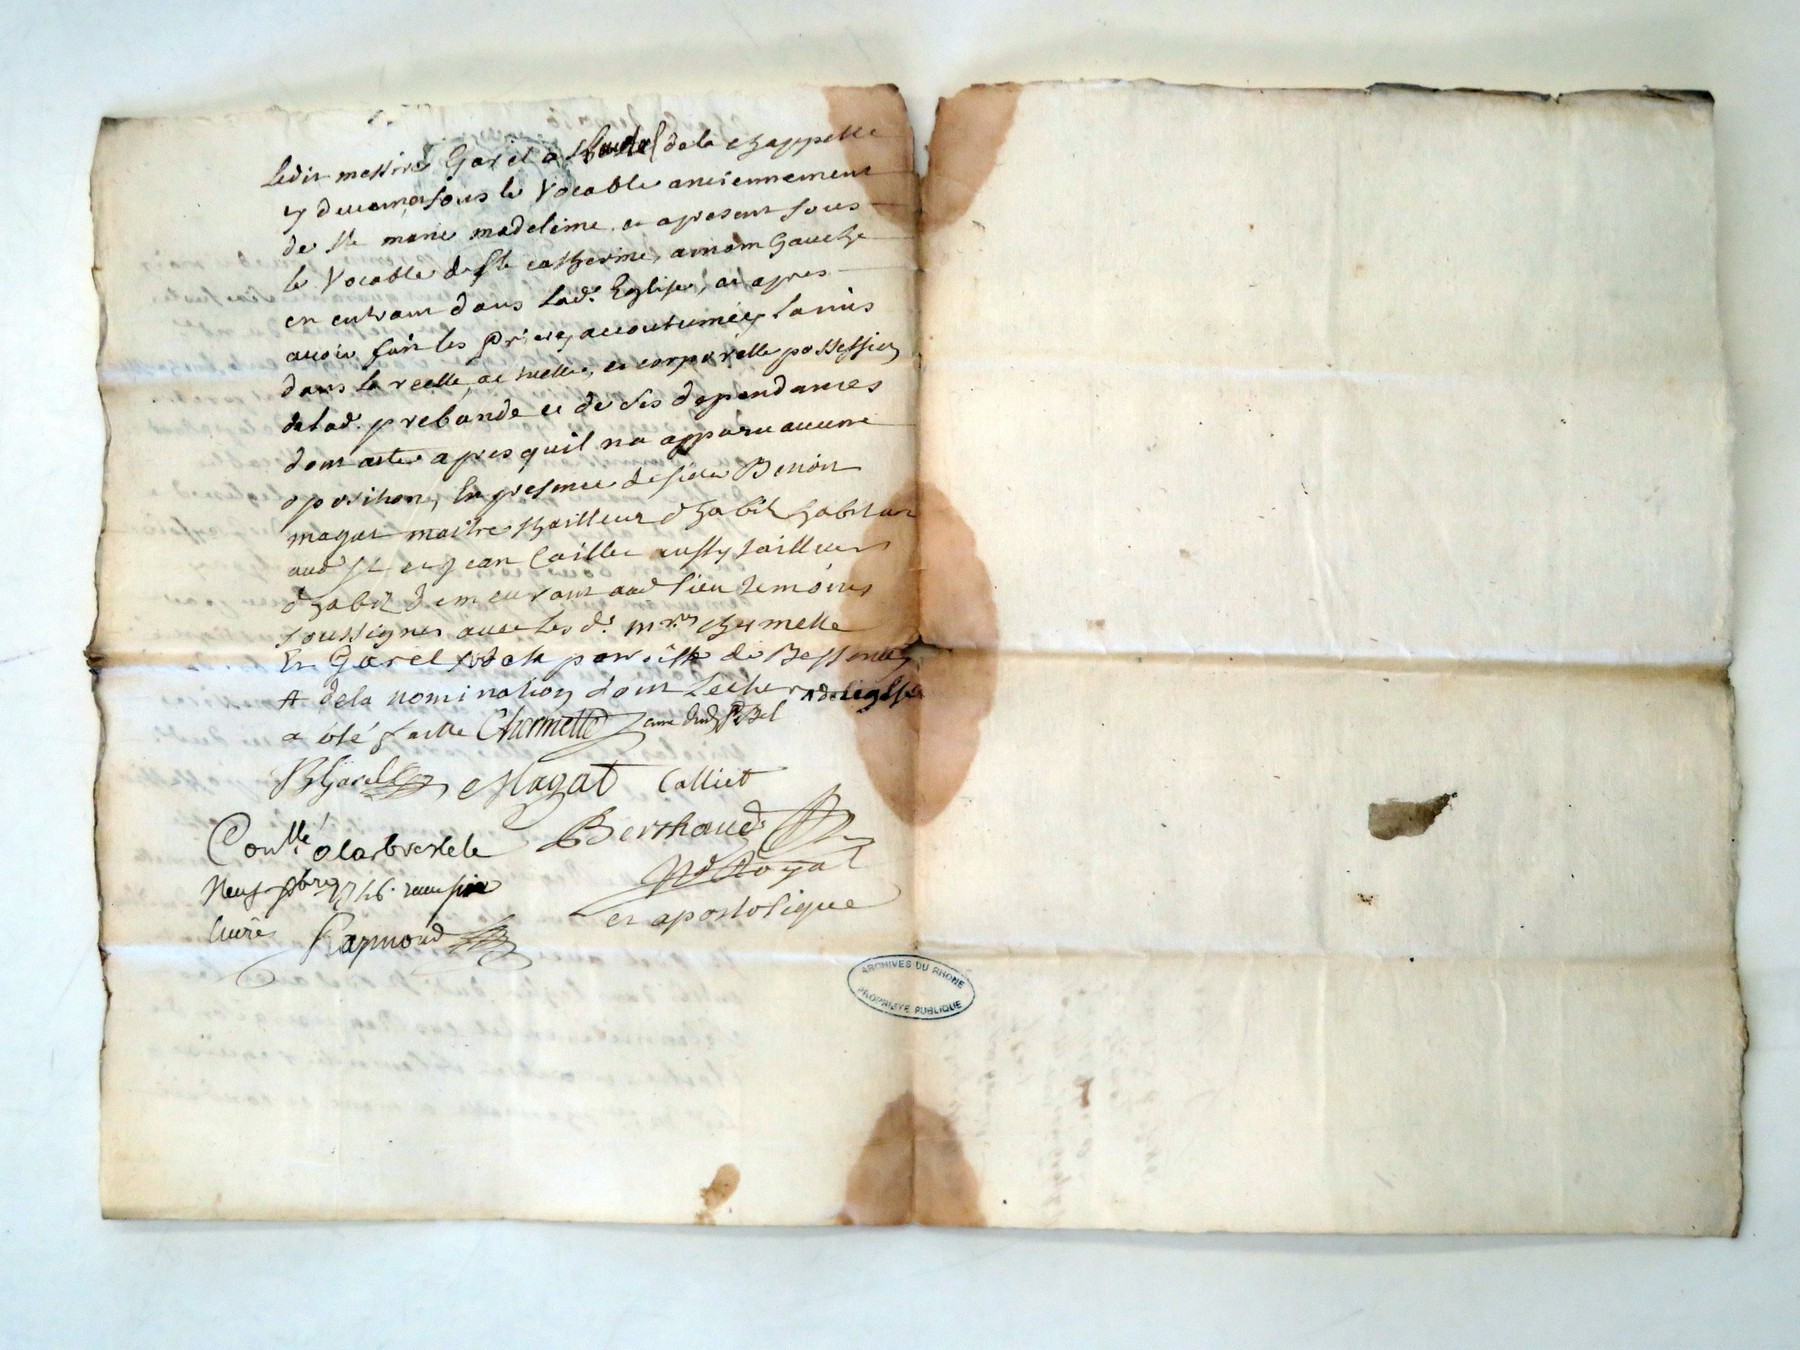 Ledit messire Garel a l'autel de la chappelle
y devemer sous le Vocable anciennement
de Ste marie madeleine et apresent sous
le Vocable de Ste catherine, a main Gauche
en entrant dans Lad.e Eglise, et apres
avoir fait les prieres accoutumées, La mis
dans la reelle, actuelle, et corporelle possession
de lad. prebande et de ses dependances
dont acte apres quil na apparu aucune
oposition, En presence de sieur Benoit
magat maitre thailleur d'habit habitant
aud St et jean Caillet aussy tailleur
d'habit demeurant aud lieu temoins
soussignes avec Les d. mres Charmette
Et Garel de la paroisse de Bessenay
A de la nomination dont Lecture
a eté faitte Charmette curé dud St Bel
B Garel Magat Calliet
Conlle a Larbresle Berthaud
Neuf 9bre 1746. receu six Nre Royal
livres Raymond et apostolique
ARCHIVES DU RHONE
PROPRIÉTÉ PUBLIQUE